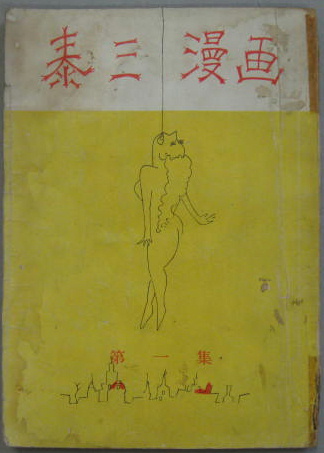 泰三漫画
第一集